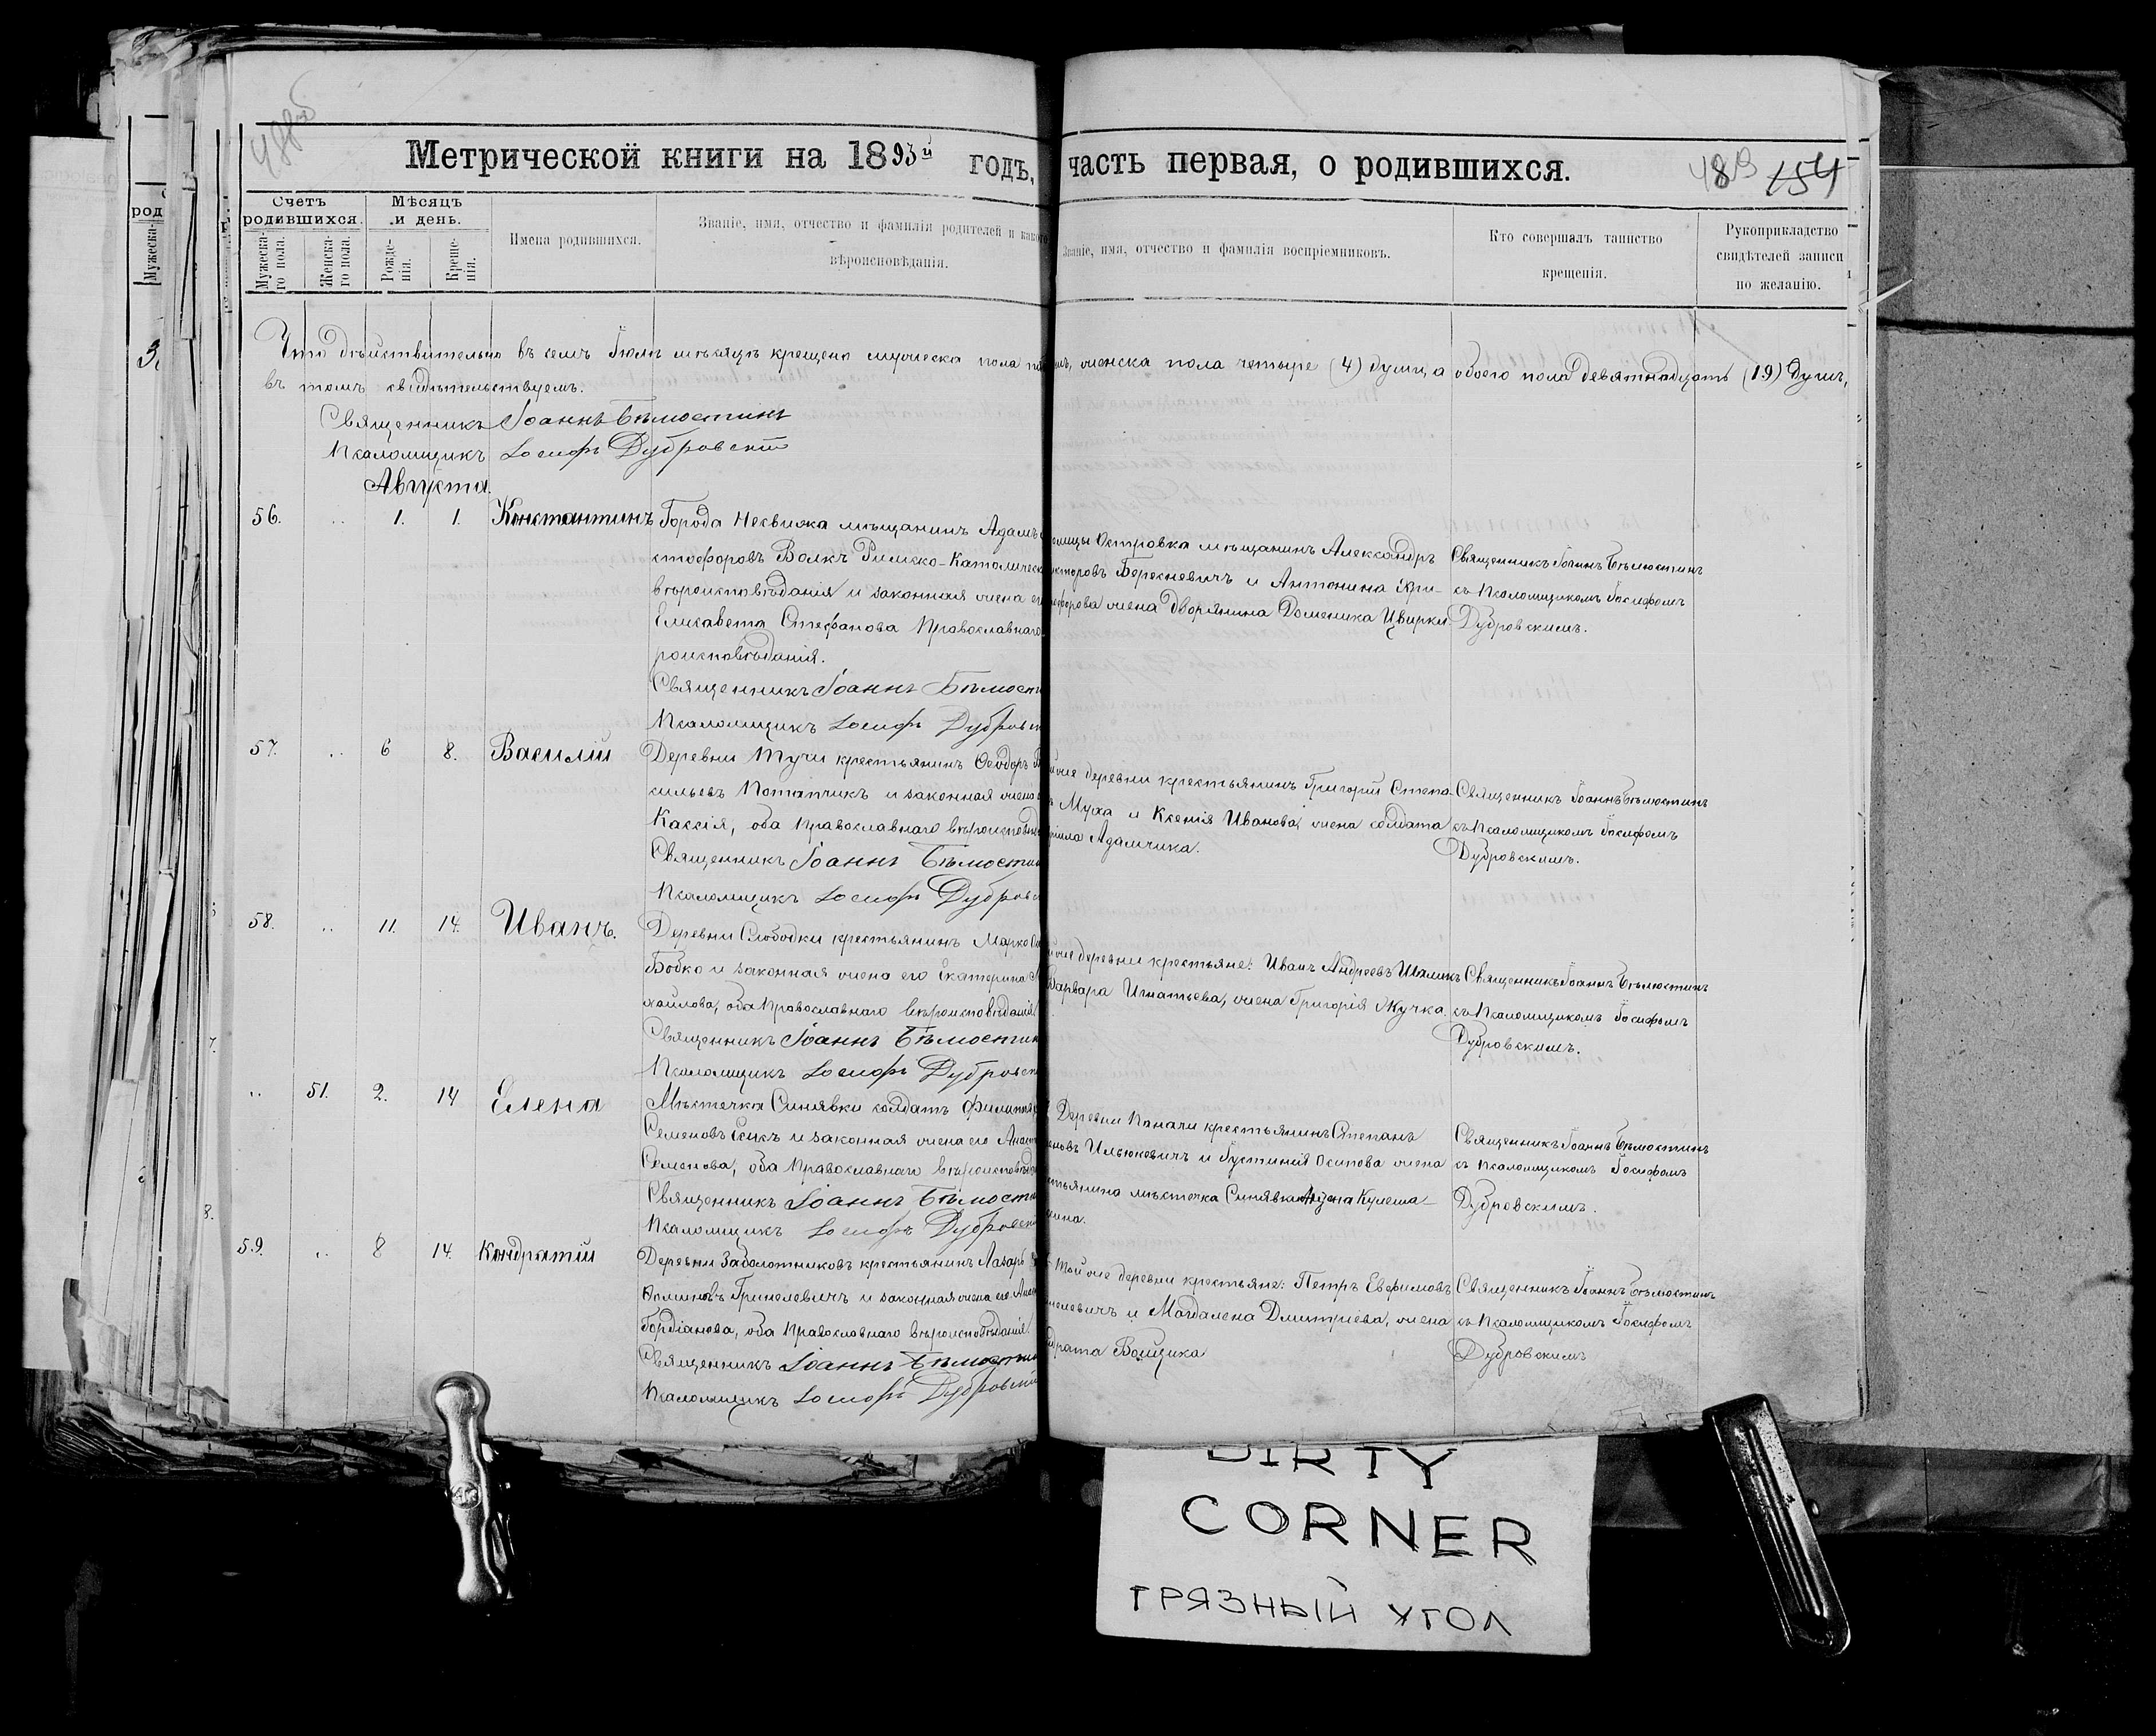 Метрической книги на 1893й годъ, часть первая, о родившихся.
489 154
Счетъ родившихся.
Мужеска-го пола.
Женска-го пола.
Мѣсяцъ и день.
Рожде-нія.
Креще-нія.
Имена родившихся.
Званіе, имя, отчество и фамилія родителей и какого
вѣроисповѣданія.
Званіе, имя, отчество и фамилія воспріемниковъ.
Кто совершалъ таинство
крещенія.
Рукоприкладство
свидѣтелей записи
по желанію.
Что дѣйствительно въ семъ Іюлѣ мѣсяцѣ крещено мужеска пола женска пола четыре (4) души, а обоего пола девятнадцать (19) душъ,
въ томъ свидѣтельствуемъ.
Священникъ Іоаннъ Бѣлюстинъ
Псаломщикъ Іосифъ Дубровскій
Августа.
56. .. 1. 1. Константинъ
Города Несвижа мѣщанинъ Адамъ
стофоровъ Волкъ Римско-Католическ
вѣроисповѣданія и законная жена его
Елисавета Стефанова Православнаго
роисповѣданія.
Священникъ Іоаннъ Бѣлюсти
Псаломщикъ Іосифъ Дубровск
Островка мѣщанинъ Александръ
Береснevичъ и Антонина Хри-
офорова жена дворянина Доменика Цвирки
Священникъ Іоаннъ Бѣлюстинъ
съ Псаломщикомъ Іосифомъ
Дубровскимъ.
57. .. 6 8. Василій
Деревни Тучи крестьянинъ Ѳеодоръ
сильевъ Потапчикъ и законная жена
Кассія, оба Православнаго вѣроисповѣд
Священникъ Іоаннъ Бѣлюстин
Псаломщикъ Іосифъ Дубровс
деревни крестьянинъ Григорій Степа-
Муха и Ксенія Иванова, жена солдата
Адамчика.
Священникъ Іоаннъ Бѣлюстинъ
съ Псаломщикомъ Іосифомъ
Дубровскимъ.
58. .. 11. 14. Иванъ.
Деревни Слободки крестьянинъ Марко
Бобко и законная жена его Екатерина
хайлова, оба Православнаго вѣроисповѣданія
Священникъ Іоаннъ Бѣлюстин
Псаломщикъ Іосифъ Дубровск
деревни крестьяне: Иванъ Андреевъ Шаликъ
Варвара Игнатьева, жена Григорія Жучка.
Священникъ Іоаннъ Бѣлюстинъ
съ Псаломщикомъ Іосифомъ
Дубровскимъ.
.. 51. 2. 14 Елена
Мѣстечка Синявки солдатъ Филиппъ
Семеновъ и законная жена его
Семенова, оба Православнаго вѣроисповѣд
Священникъ Іоаннъ Бѣлюсти
Псаломщикъ Іосифъ Дубровск
Деревни крестьянинъ Степанъ
Ильюкевичъ и Іустинія Осипова жена
мѣстечка Синявки Кулеша-
Священникъ Іоаннъ Бѣлюстинъ
съ Псаломщикомъ Іосифомъ
Дубровскимъ.
59. .. 8 14. Кондратій
Деревни Заболотниковъ крестьянинъ Лазарь
Гринелевичъ и законная жена его
Гордіанова, оба Православнаго вѣроисповѣданія.
Священникъ Іоаннъ Бѣлюстин
Псаломщикъ Іосифъ Дубровскі
Той же деревни крестьяне: Петръ Евфимовъ
нелевичъ и Магдалена Дмитріева, жена
драта Воищика
Священникъ Іоаннъ Бѣлюстинъ
съ Псаломщикомъ Іосифомъ
Дубровскимъ
DIRTY
CORNER
ГРЯЗНЫЙ УГОЛ